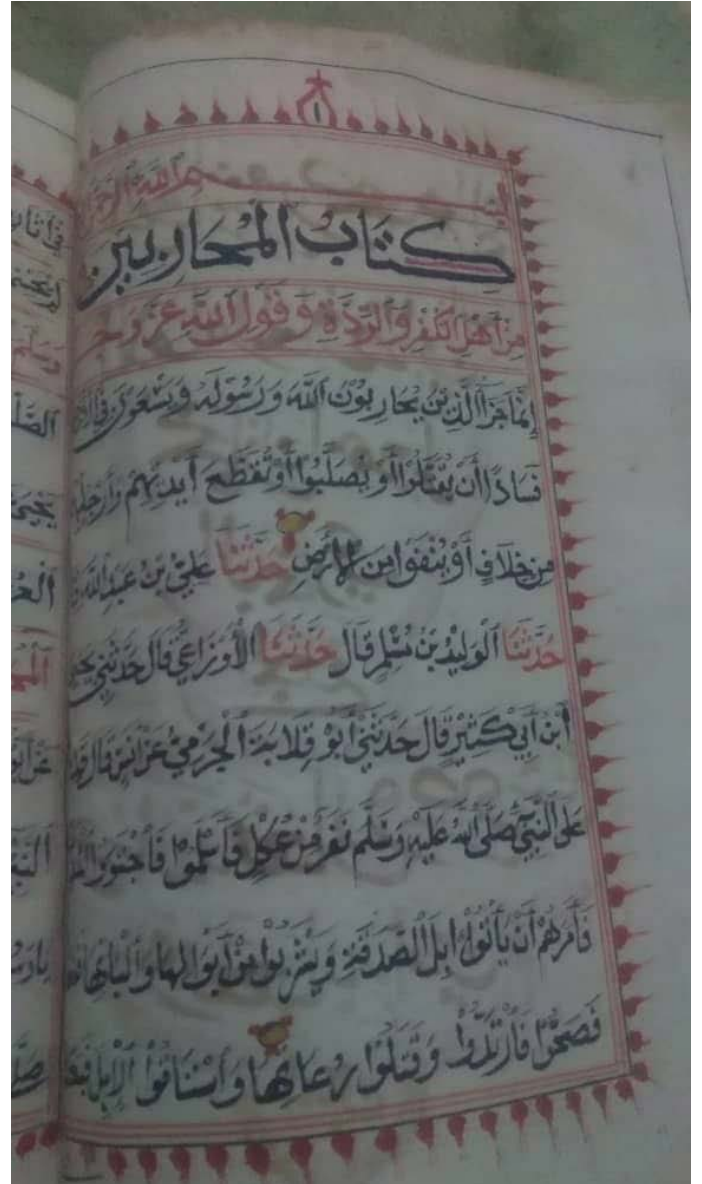 ١
بسم الله
كتاب المحاربين
من أهل الكفر والردة وقول الله عز وجل
إنما جزاؤا الذين يحاربون الله ورسوله ويسعون في
فسادا أن يقتلوا أو يصلبوا أو تقطع أيديهم وأرجلهم
من خلاف أو ينفوا من الأرض حدثنا علي بن عبد الله
حدثنا الوليد بن مسلم قال حدثنا الأوزاعي قال حدثني يحيى
ابن أبي كثير قال حدثني أبو قلابة الجرمي عن أنس قال قدم
على النبي صلى الله عليه وسلم نفر من عكل فأسلموا فاجتووا
فأمرهم أن يأتوا إبل الصدقة ويشربوا من أبوالها وألبانها
فصحوا فارتدوا وقتلوا رعاتها واستاقوا الإبل